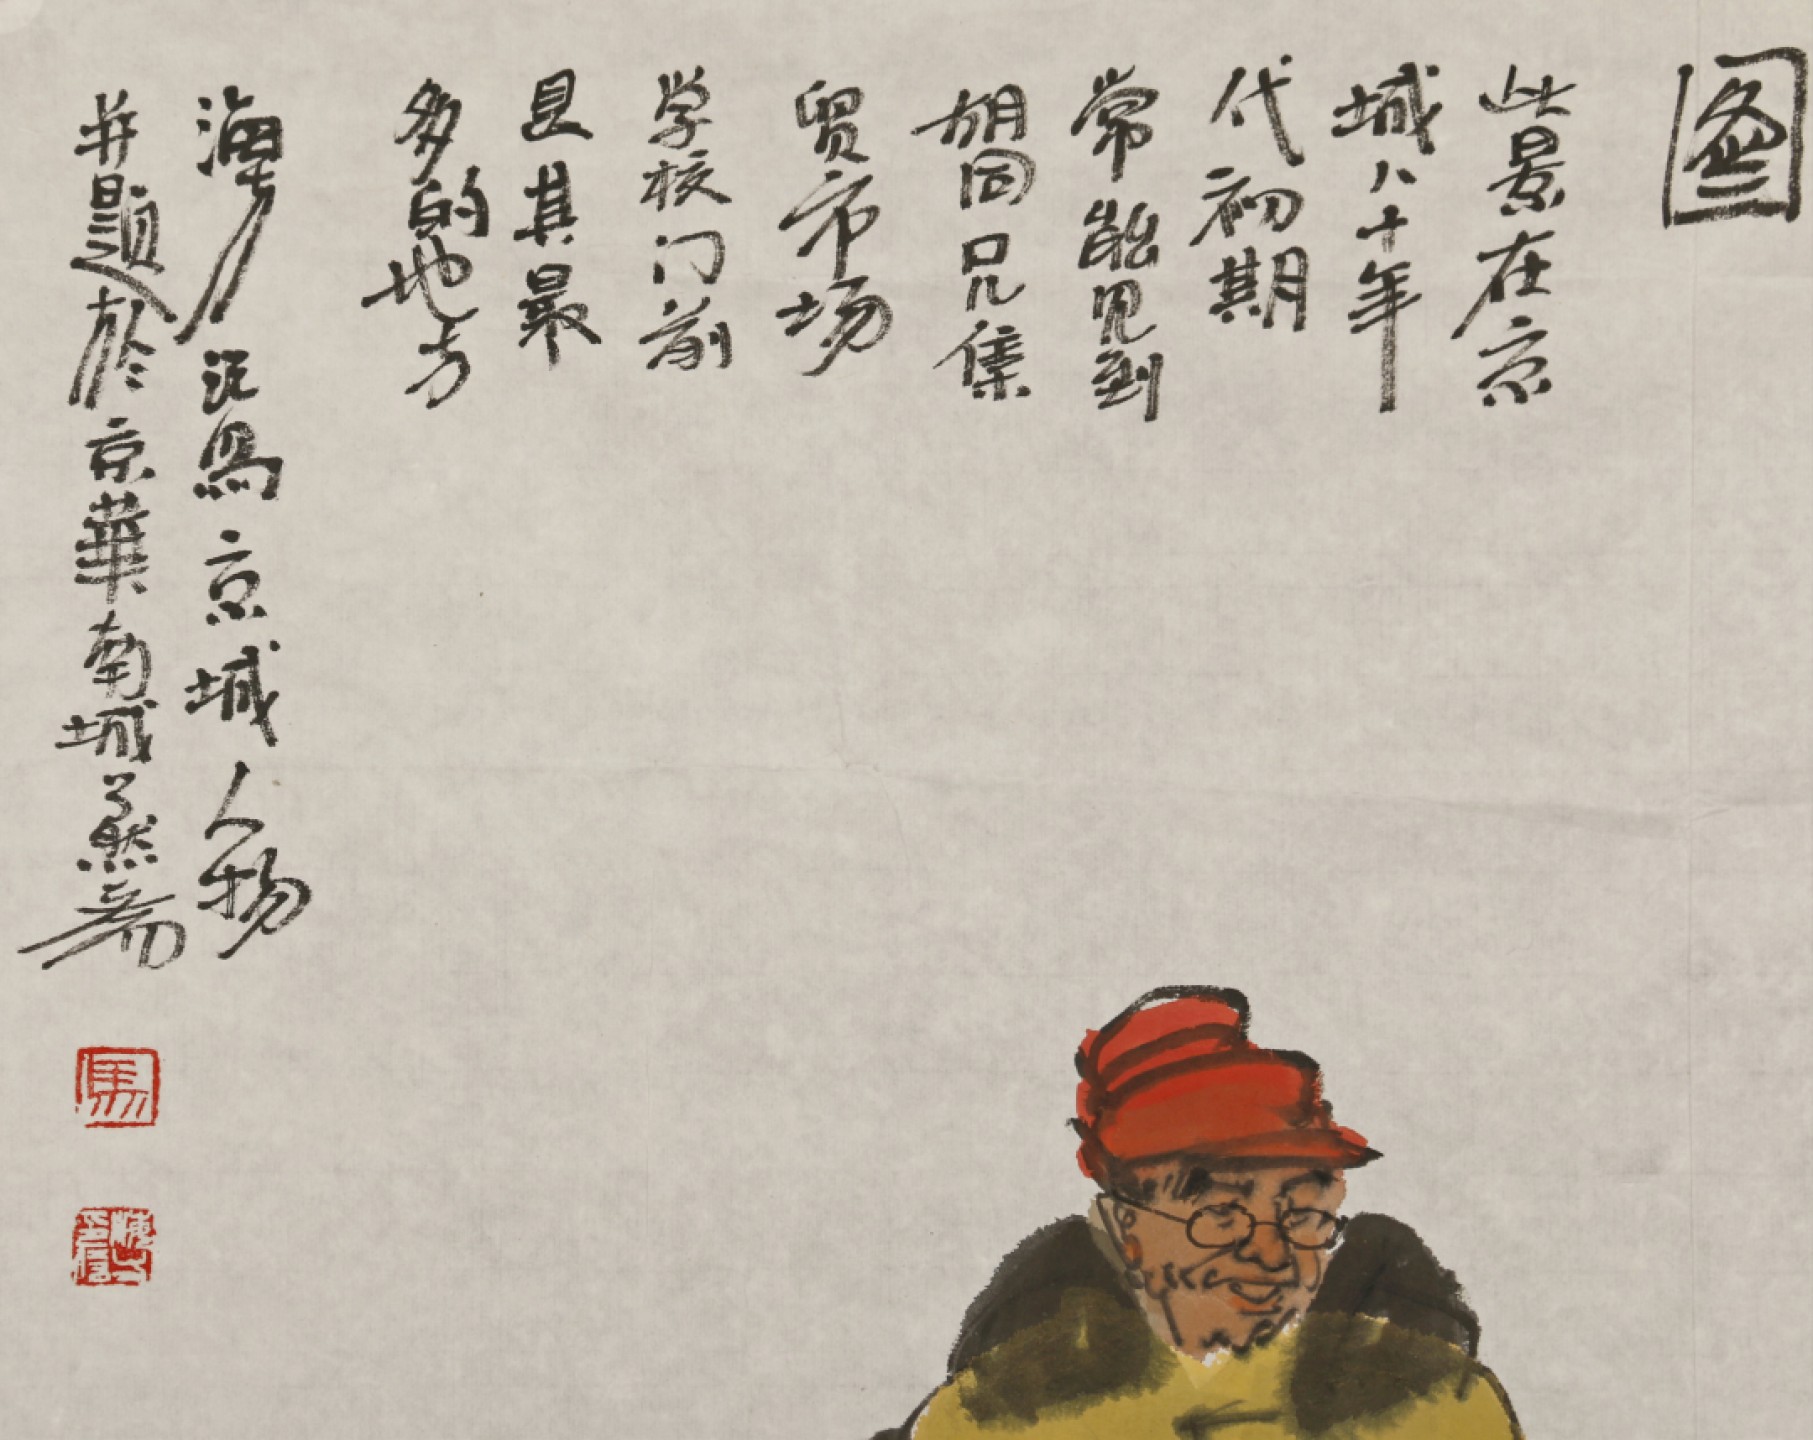 图
此景在京
城八十年
代初期
常能见到
胡同口集
贸市场
学校门前
且其最
多的地方
海方记写京城人物
并题於京華南城了然斋
马